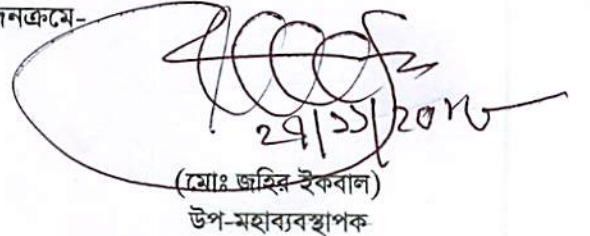 ২৭/১১/২০১৮
(মোঃ জহির ইকবাল)
উপ-মহাব্যবস্থাপক